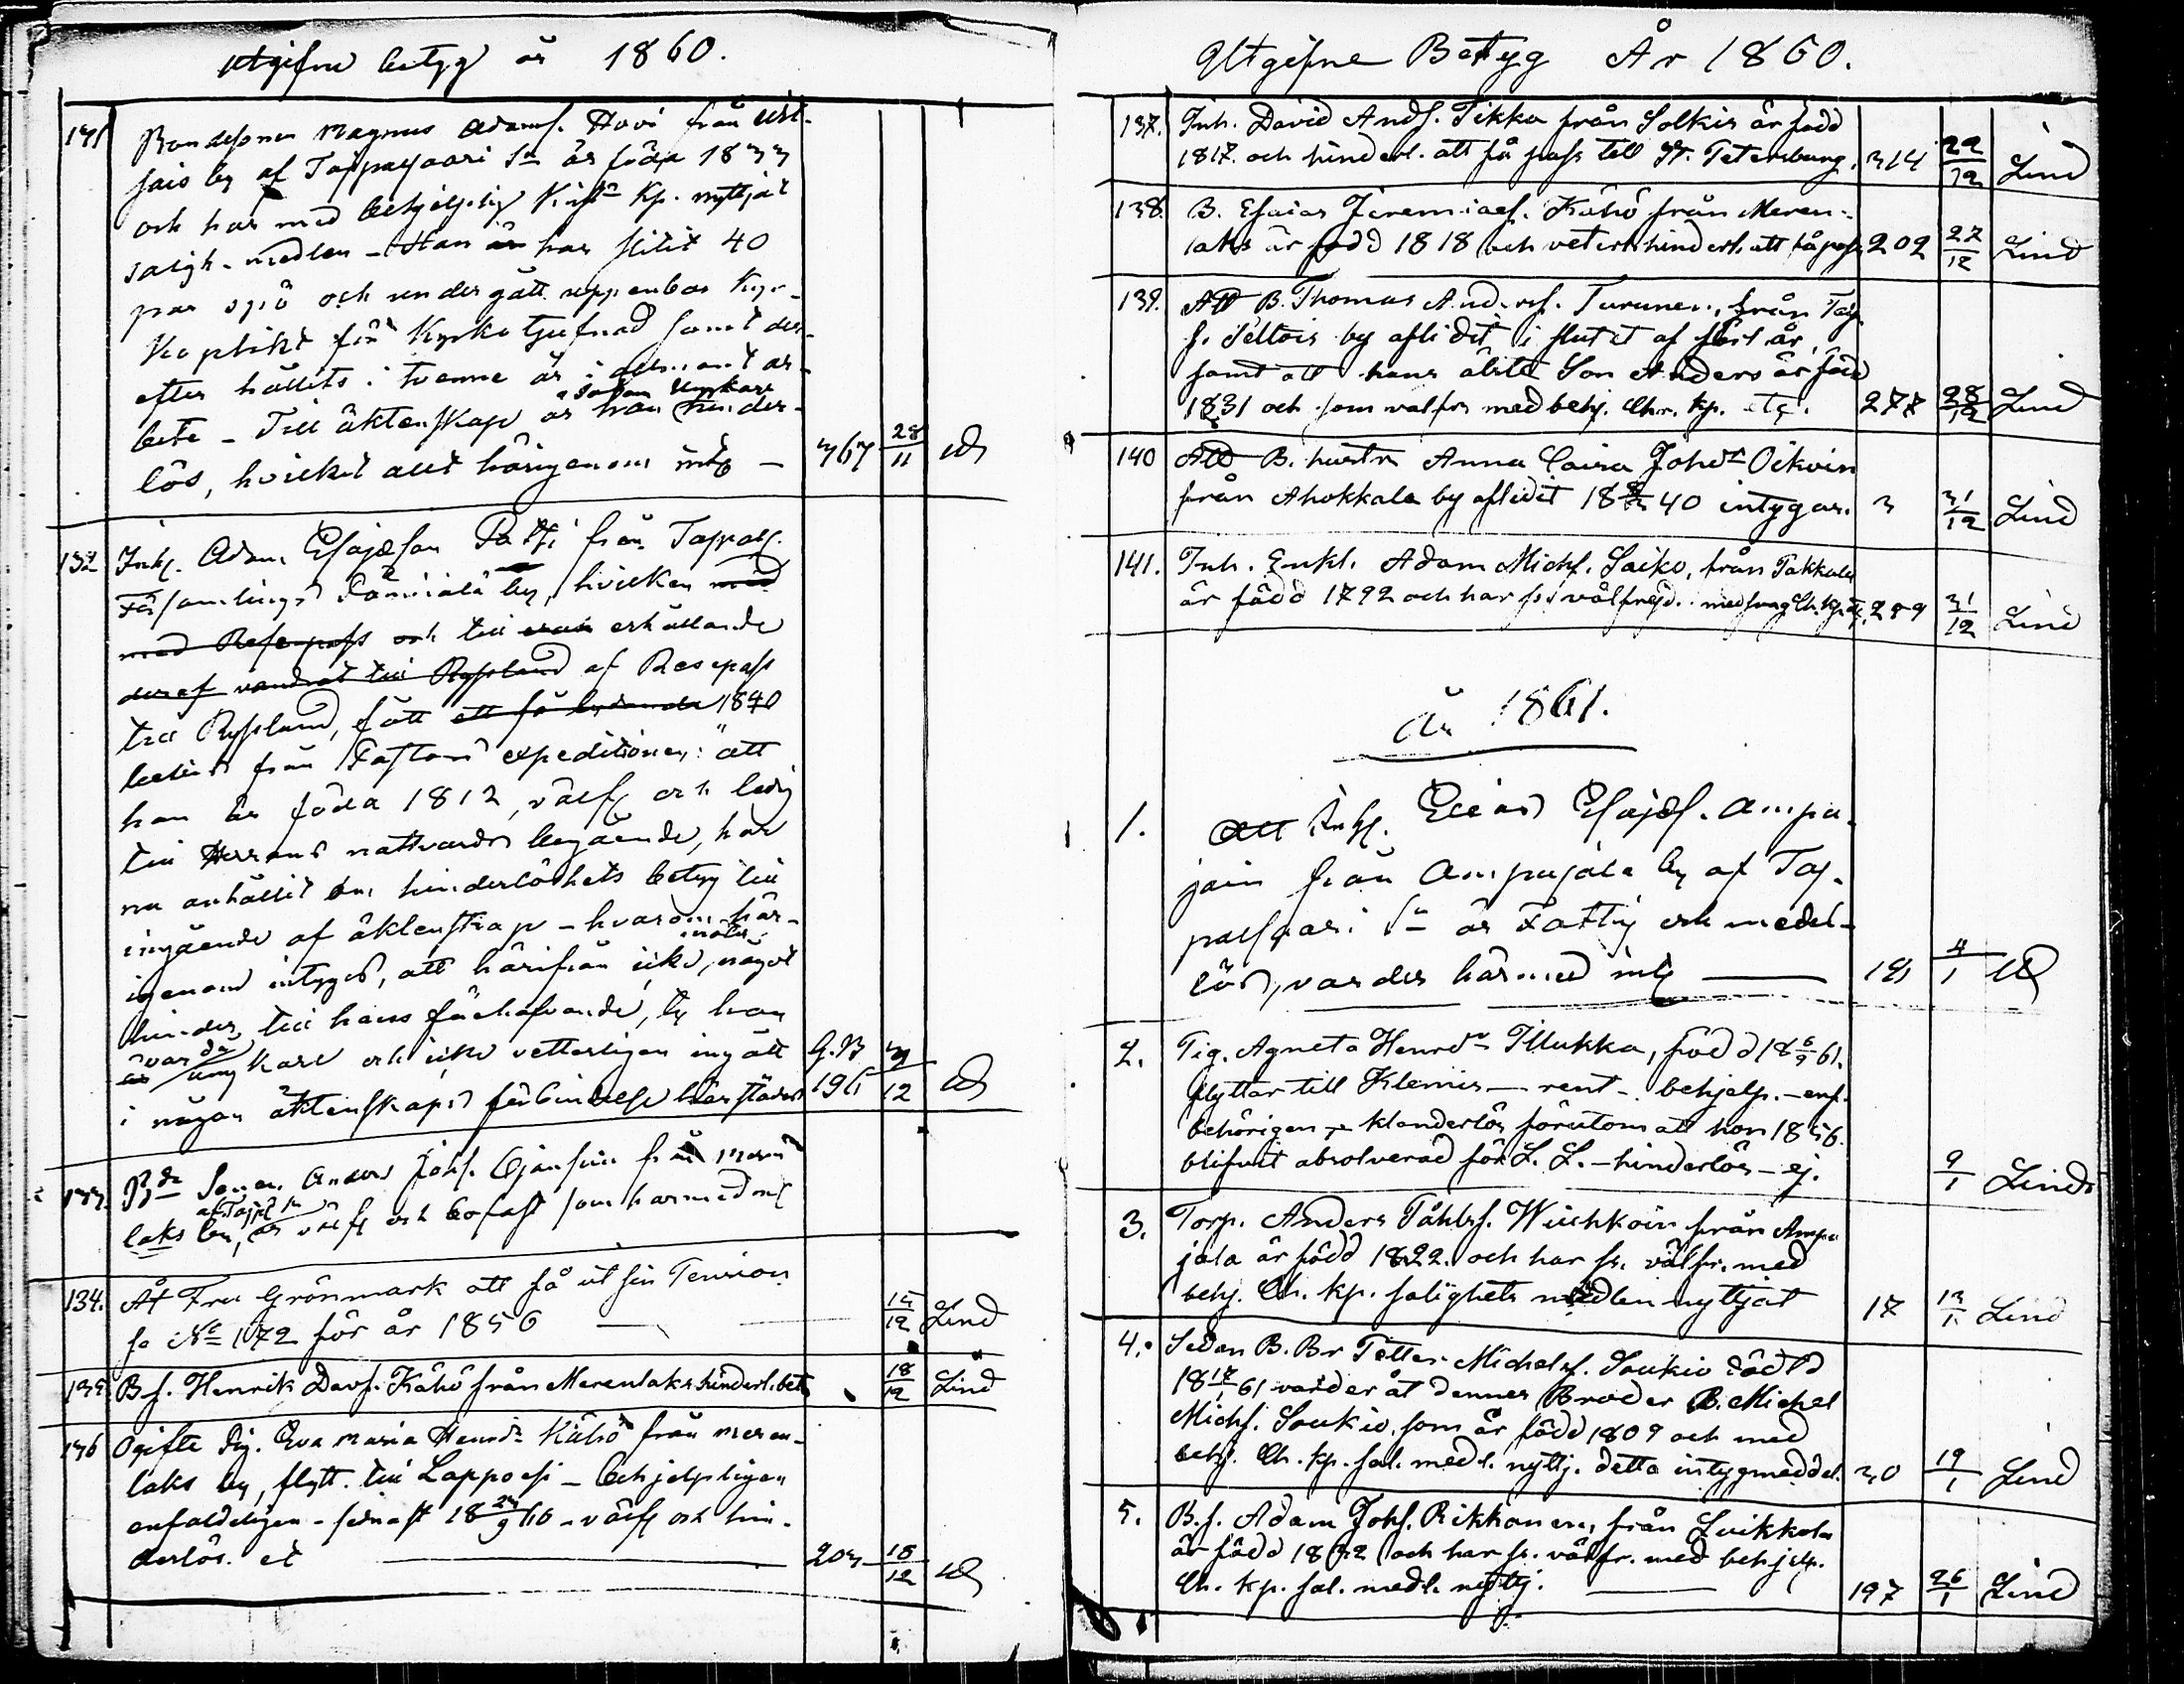 Utgifne betyg år 1860.
131 Bondesonen Magnus Adamss. Hovi från
jais by af Taipalsaari Sn är född 1833
och har med behjelplig Kristd. kp. nyttjat
saligh. medlen - Han är har slitit 40
par spö och undergått uppenbar kyr-
koplikt för Kyrkotjufnad samt der-
efter hållits i tvenne år i allmänt ar-
bete - Till äktenskap är han hinder-
lös, hvilket allt härigenom intyg - 367 28/11
132 Inh. Adam Esajæson Patzi från Taipals.
Församlings by, hvilken med
med Resepass och till erhållande
deraf vandrat till Ryssland af Resepass
till Ryssland, fått ett så lydande 1840
från Pastors expeditionen: "att
han är född 1812, välf. och ledig
till Herrans nattvards begående, har
nu anhållit om hinderlöshets betyg till
ingående af äktenskap - hvarom här-
igenom intygas, att härifrån icke, något
hinder till hans förehafvande, ty han
är var då ung karl och icke vetterligen ingått
i någon äktenskaps förbindelse härstädes 196 31/12
133. Bde Sonen Anders Johs. från Meren
laks by, af Taipals. sn är välf. och bofast som härmed
134. Åt Fru Grönmark att få ut sin Pension
se No 1072 för år 1856 15/12 Lind
135. B.s. Henrik Davs. Kähö från Merenlaks hinderl. bet. 18/12 Lind
136 Ogifta pig. Eva Maria Henrdr Kähö från Meren-
laks by, flytt. till Lappvesi - behjelpligen
enfaldeligen - senast 18 23/9 60 - välf. och hin-
derlös. et 203 18/12
Utgifne Betyg År 1860.
137. Inh. David Ands. Tikka från Solkis är född
1817. och hinderl. att få pass till St. Petersburg. 314 22/12 Lind
138. B. Esaias Jeremiaes. Kähö från Meren-
laks är född 1818 och veterl. hinderl. att få pass 202 27/12 Lind
139. Att B. Thomas Anderss. Turunen, från Taip.
s. Peltois by aflidit i slutet af förl. år,
samt att hans äldsta Son Anders är född
1831 och som välfr. med behj. Chr. kp. etc. 277 28/12 Lind
140 Att B. hustru Anna Caisa Johdr Oikoin
från Ahokkala by aflidit 18 40 intygas. 3 31/12 Lind
141. Inh. Enkl. Adam Michs. Saiko, från Pakkala
är född 1792 och har fört välfrejd. med svag Ch. kp. 289 31/12 Lind
År 1861.
1. Att Inh. Elias Esajæs. Ampu-
jain från Ampujala by af Tai-
palsaari Sn är Fattig och medel-
lös, varder härmed intyg 181 4/1
2. Pig. Agneta Henrdr Illukka, född 18 6/9 61.
flyttar till Klemis - rent - behjelp. - enf.
behörigen - klanderlös förutom att hon 1856
blifvit absolverad för L. L. - hinderlös - ej. 9/1 Lind
3. Torp. Anders Påhlss. Wiihkoin från Ampu
jala är född 1822. och har fr. välfr. med
behj. Ch. kp. salighets medlen nyttjat 17 13/1 Lind
4. Sedan B. Br Petter Michelss. Soukio död d
18 17/1 61 varder åt dennes Broder B. Michel
Michs. Soukio, som är född 1809 och med
behj. Ch. kp. sal. medl. nyttj. detta intyg meddel. 30 19/1 Lind
5. B.s. Adam Johs. Rikkonen, från Luikkola
är född 1832 och har fr. välfr. med behjelp.
Ch. kp. sal. medl. nyttj. 197 26/1 Lind